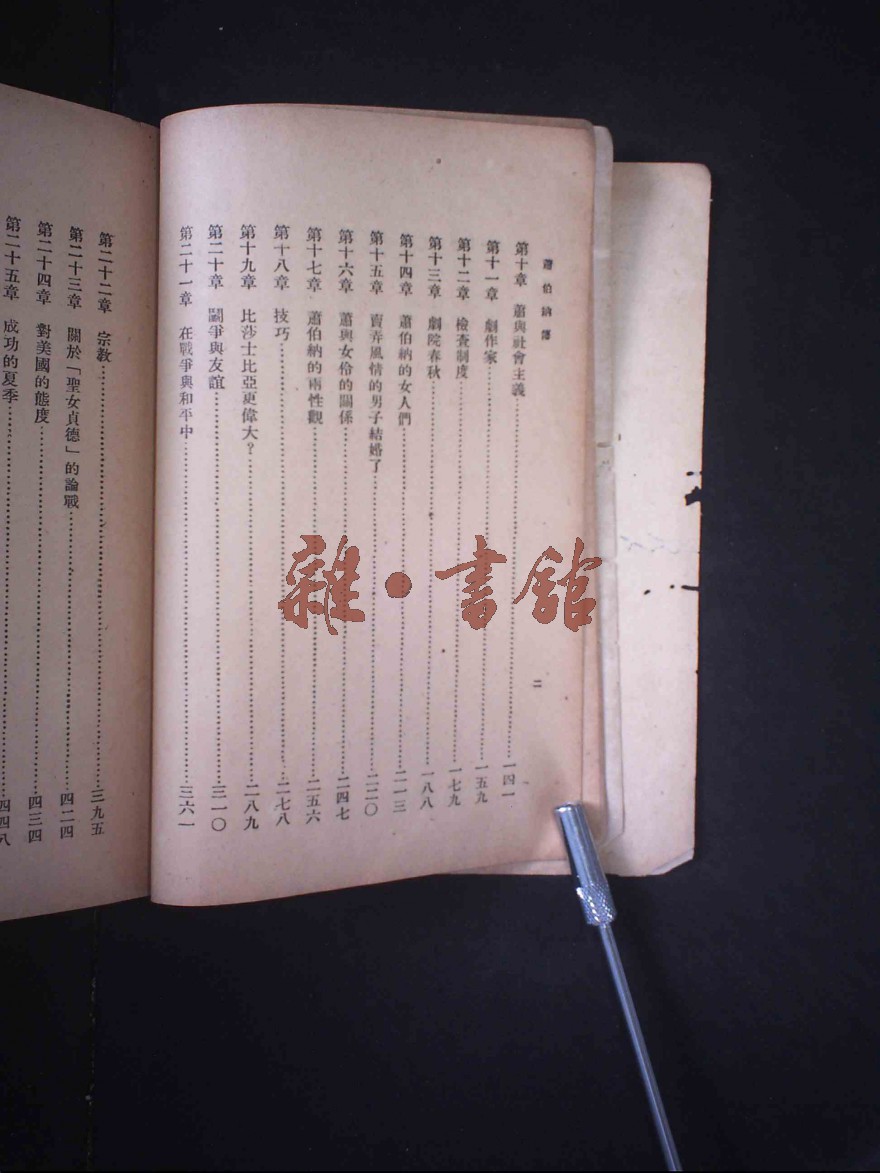 蕭伯納傳
第十章 蕭與社會主義……一四一
第十一章 劇作家……一五九
第十二章 檢查制度……一七九
第十三章 劇院春秋……一八八
第十四章 蕭伯納的女人們……二一三
第十五章 賣弄風情的男子結婚了……二二〇
第十六章 蕭與女伶的關係……二四七
第十七章 蕭伯納的兩性觀……二五六
第十八章 技巧……二七八
第十九章 比莎士比亞更偉大？……二八九
第二十章 鬭爭與友誼……三一〇
第二十一章 在戰爭與和平中……三六一
二
第二十二章 宗教……三九五
第二十三章 關於「聖女貞德」的論戰……四二四
第二十四章 對美國的態度……四三四
第二十五章 成功的夏季……四四八
雜·書館